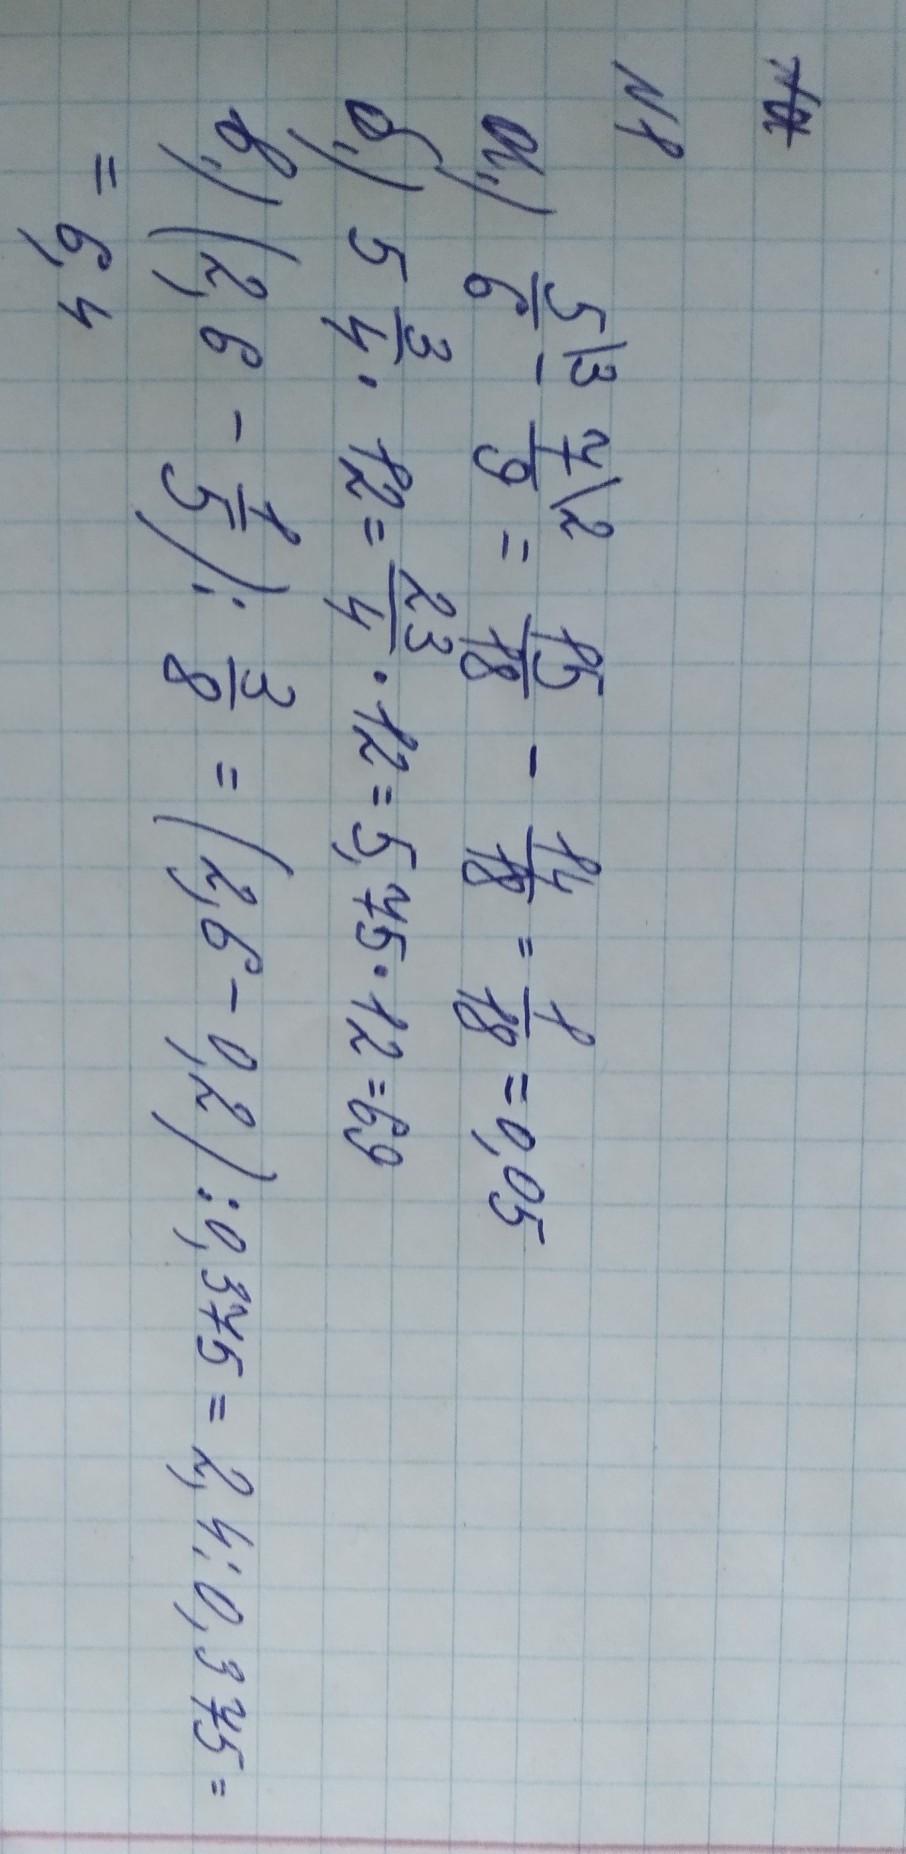 №1
а,) 5/6\3 - 7/9\2 = 15/18 - 14/18 = 1/18 = 0,05
б,) 5 3/4 · 12 = 23/4 · 12 = 5,75 · 12 = 69
в,) (2,6 - 1/5) : 3/8 = (2,6 - 0,2) : 0,375 = 2,4 : 0,375 =
= 6,4